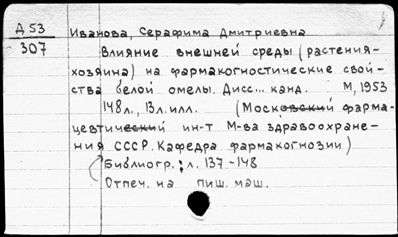 Д 53
307
Иванова, Серафима Дмитриевна
Влияние внешней среды (растения-
хозяина) на фармакогностические свой-
ства белой омелы. Дисс... канд. М, 1953
148 л., 13 л. илл. (Московский фарма-
цевтический ин-т М-ва здравоохране-
ния СССР. Кафедра фармакогнозии)
Библиогр.: л. 137-148
Отпеч. на пиш. маш.